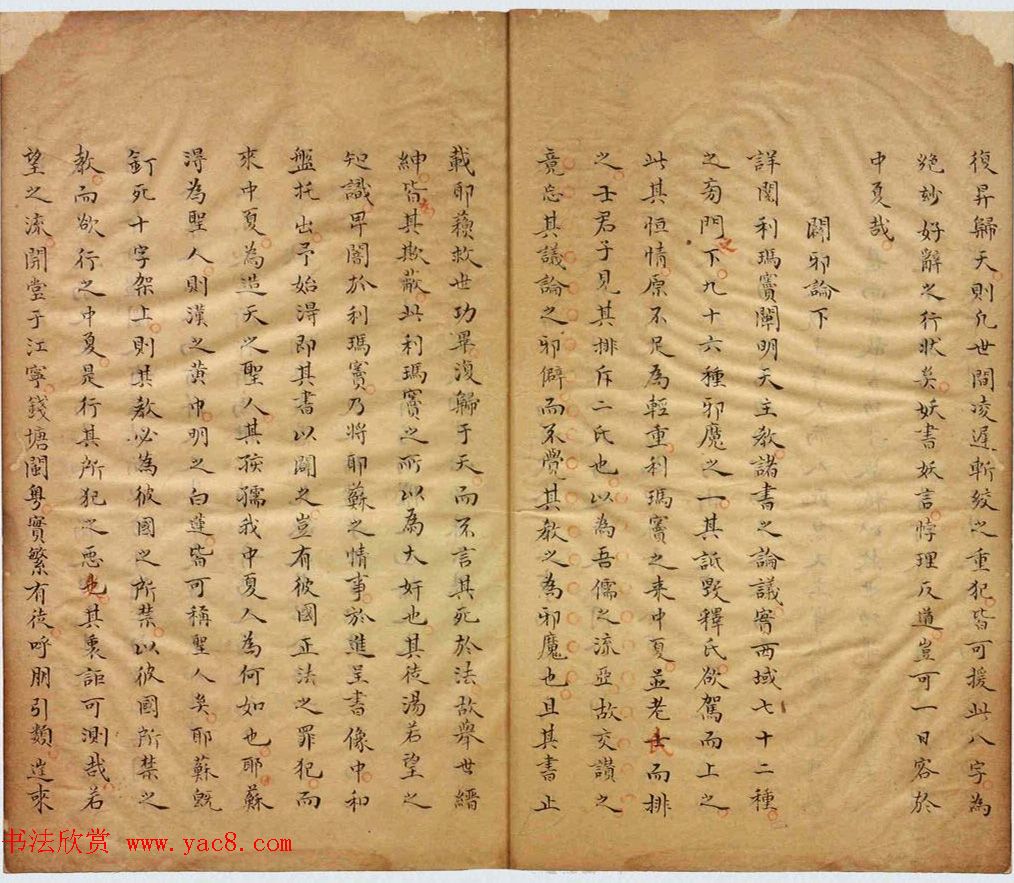 復昇歸天則凡世間凌遲斬絞之重犯皆可援此八字為
絕妙好辭之行狀矣妖書妖言悖理反道豈可一日容於
中夏哉
闢邪論下
詳閱利瑪竇闡明天主教諸書之論議實西域七十二種
之旁門下九十六種邪魔之一其詆毀釋氏欲駕而上之
此其恒情原不足為輕重利瑪竇之来中夏並老氏而排
之士君子見其排斥二氏也以為吾儒之流亞故交讚之
竟忘其議論之邪僻而不覺其教之為邪魔也且其書止
載耶穌救世功畢復歸于天而不言其死於法故舉世縉
紳皆為其欺蔽此利瑪竇之所以為大奸也其徒湯若望之
知識卑闇於利瑪竇乃將耶蘇之情事於進呈書像中和
盤托出予始得即其書以闢之豈有彼國正法之罪犯而
來中夏為造天之聖人其孩孺我中夏人為何如也耶蘇
得為聖人則漢之黃巾明之白蓮皆可稱聖人矣耶蘇既
釘死十字架上則其教必為彼國之所禁以彼國所禁之
教而欲行之中夏是行其所犯之惡也其衷詎可測哉若
望之流開堂于江寧錢塘閩粵實繁有徒呼朋引類往來
书法欣赏 www.yac8.com